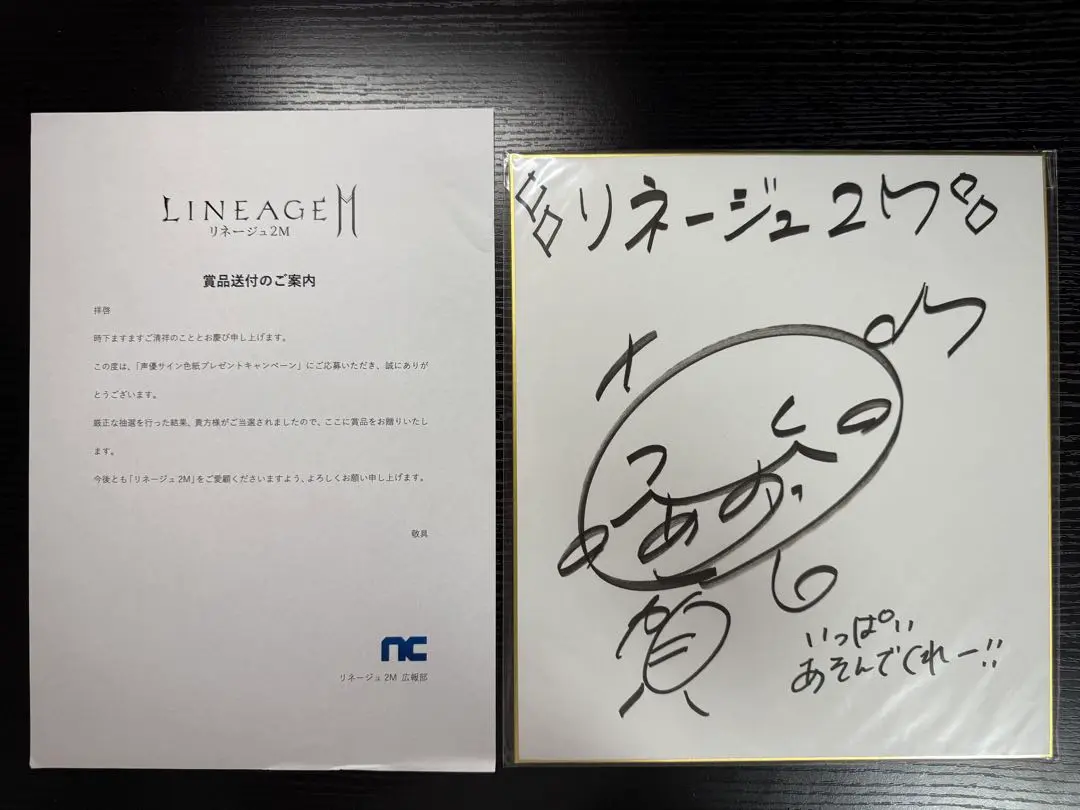 LINEAGE M
リネージュ2M
賞品送付のご案内
拝啓
時下ますますご清祥のこととお慶び申し上げます。
この度は、「声優サイン色紙プレゼントキャンペーン」にご応募いただき、誠にありが
とうございます。
厳正な抽選を行った結果、貴方様がご当選されましたので、ここに賞品をお贈りいたし
ます。
今後とも「リネージュ2M」をご愛顧くださいますよう、よろしくお願い申し上げます。
敬具
nc
リネージュ2M 広報部
リネージュ2M
いっぱい
あそんでくれー!!